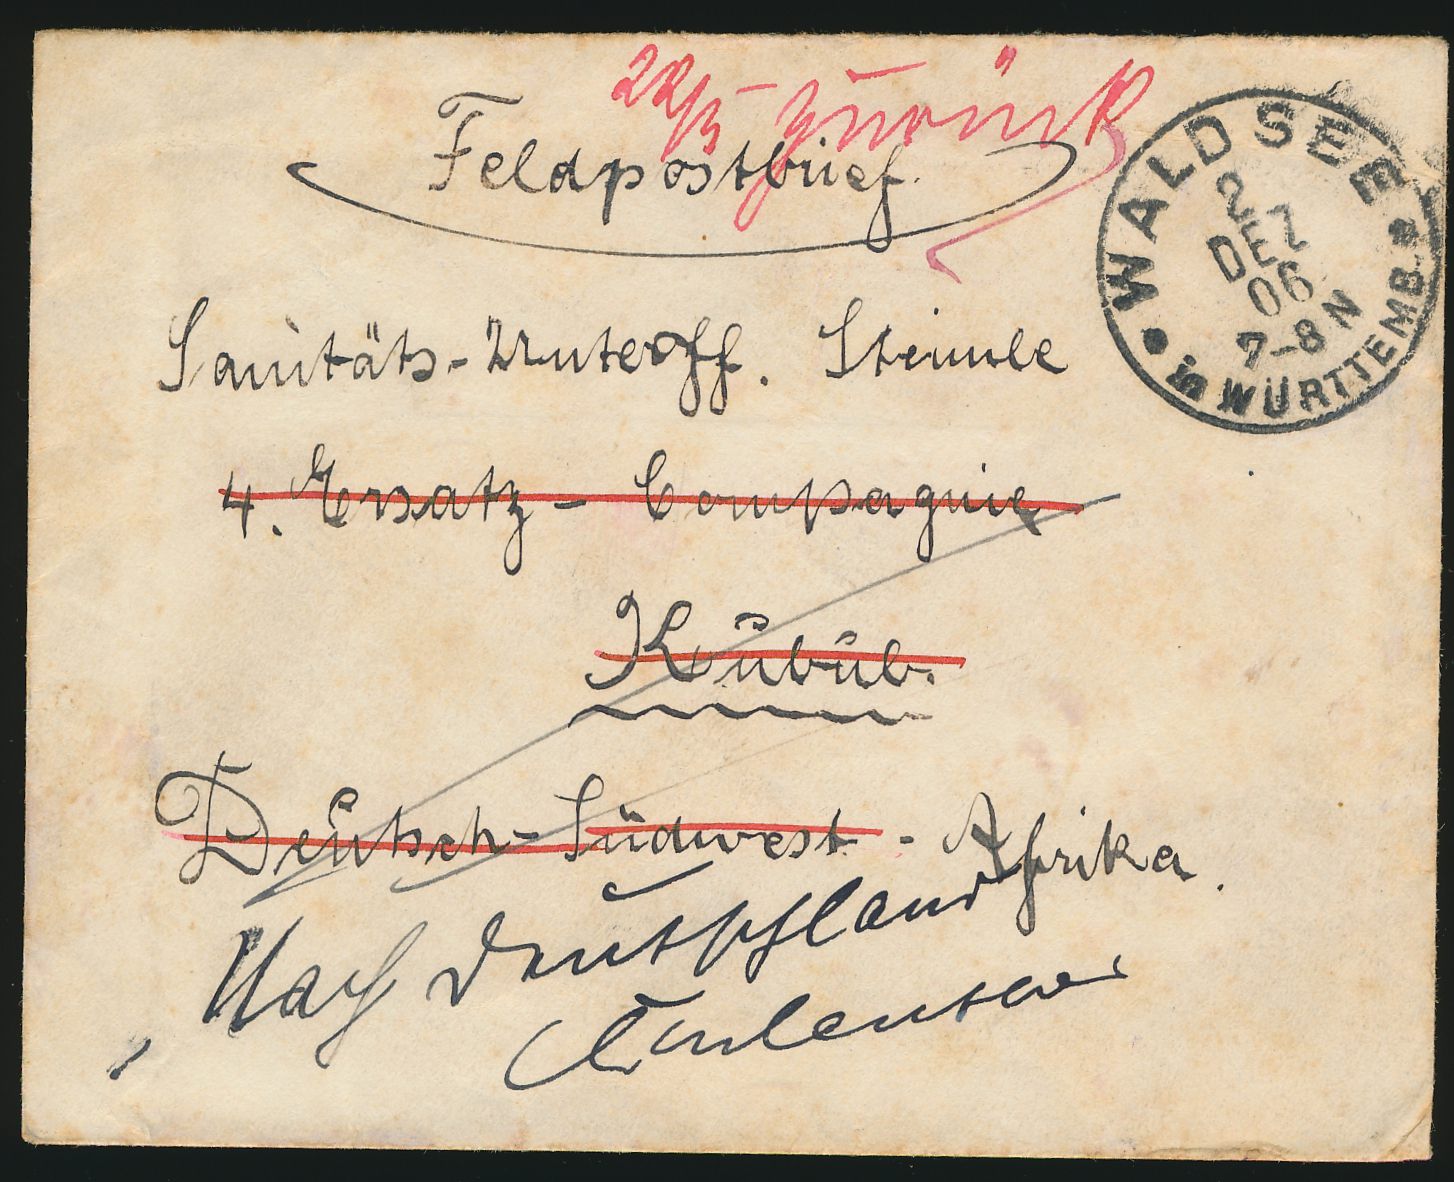 zurück
Feldpostbrief.
WALDSEE
2
DEZ
06
7-8 N
in WÜRTTEMB.
Sanitäts-Unteroff. Steimle
4. Ersatz-Compagnie
Kúbúb.
Deutsch-Südwest-Afrika.
Nach Deutschland